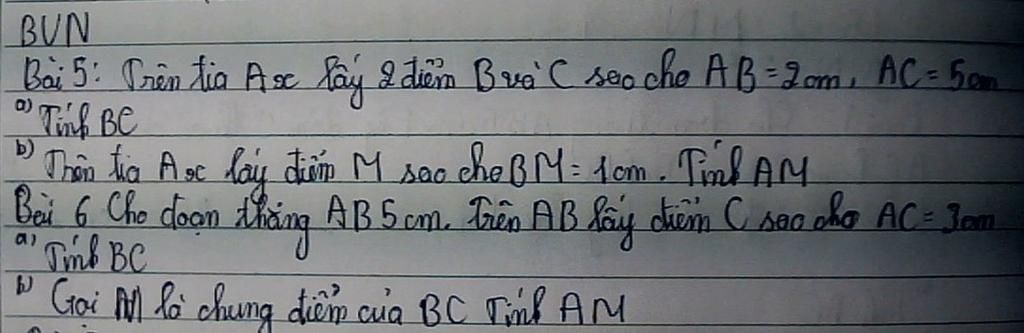 BVN
Bài 5: Trên tia Ax lấy 2 điểm B và C sao cho AB = 2cm, AC = 5cm
a) Tính BC
b) Trên tia Ax lấy điểm M sao cho BM = 1cm. Tính AM
Bài 6 Cho đoạn thẳng AB 5cm. Trên AB lấy điểm C sao cho AC = 3cm
a) Tính BC
b) Gọi M là chung điểm của BC Tính AM